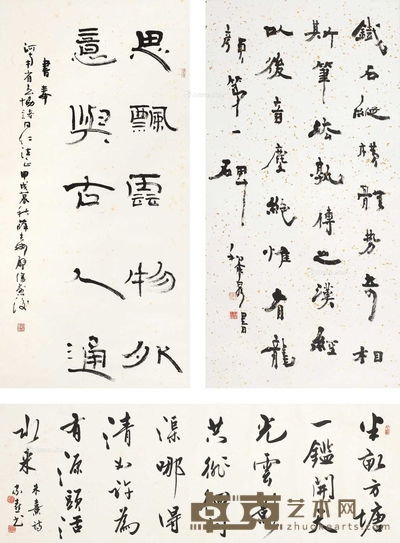 思飄雲物外
意與古人通
書奉
河南省書協諸同仁清正甲戌暮秋
鐵石縱橫體勢奇相
斯筆跡孰傳之漢經
以後音塵絕惟有龍
顏第一碑
半畝方塘
一鑑開天
光雲影
共徘徊問
渠哪得
清如許為
有源頭活
水來
朱熹詩
艺术网